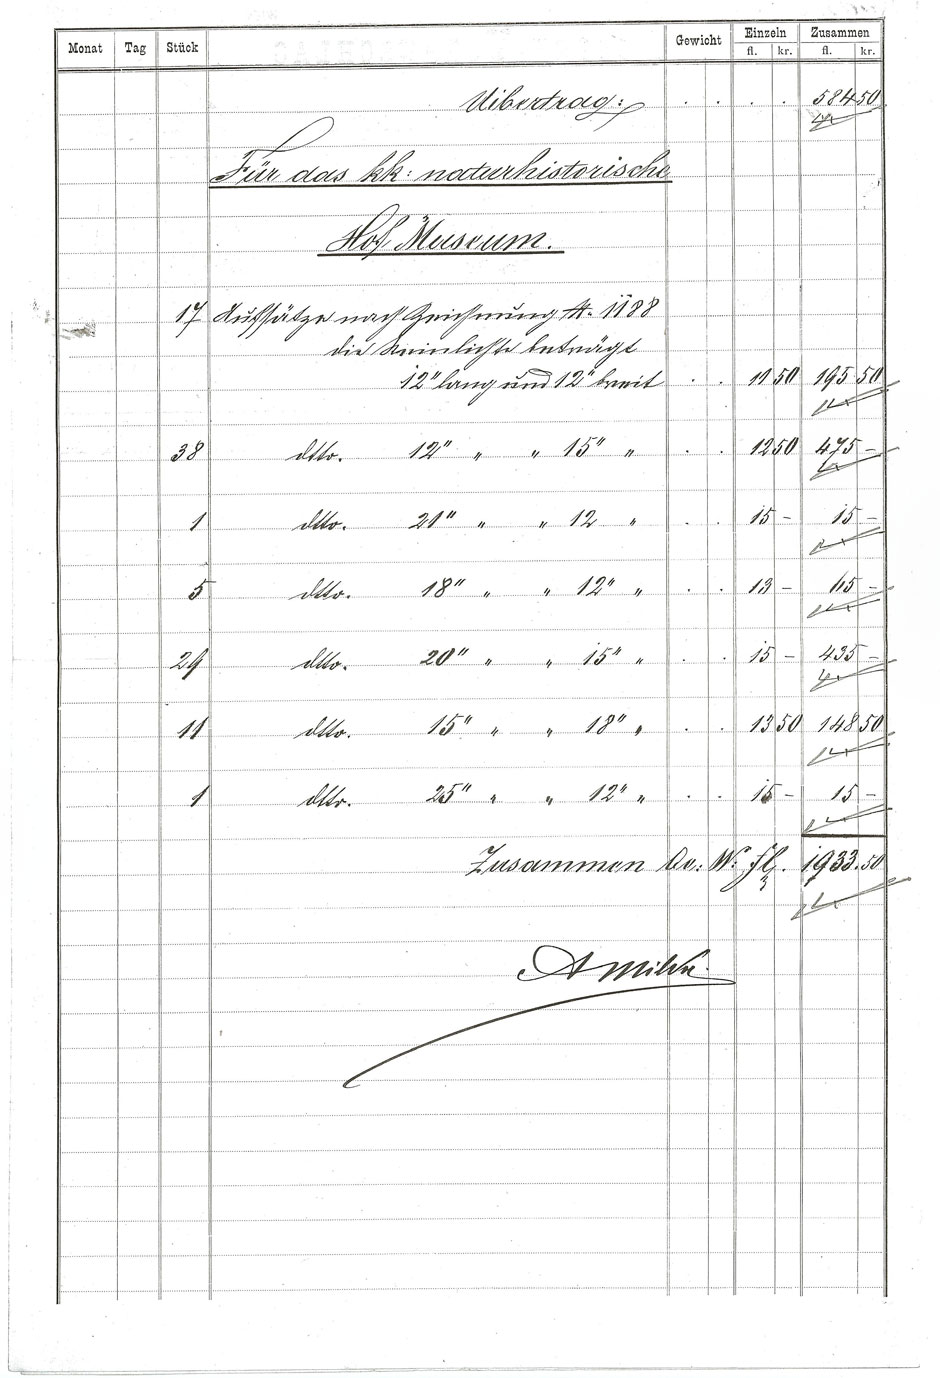 Monat Tag Stück Gewicht Einzeln Zusammen
fl. kr. fl. kr.
Uibertrag: . . . . 584 50
Für das kk: naturhistorische
Hof Museum.
17 Aufsätze nach Zeichnung № 1188
die Kaminlichte beträgt
12" lang und 12" breit . . 11 50 195 50
38 dtto. 12" " " 15" " . . 12 50 475 -
1 dtto. 21" " " 12 " . . 15 - 15 -
5 dtto. 18" " " 12" " . . 13 - 65 -
29 dtto. 20" " " 15" " . . 15 - 435 -
11 dtto. 15" " " 18" " . . 13 50 148 50
1 dtto. 25" " " 12" " . . 15 - 15 -
Zusammen Oe: W: fl. 1933.50
A Milde